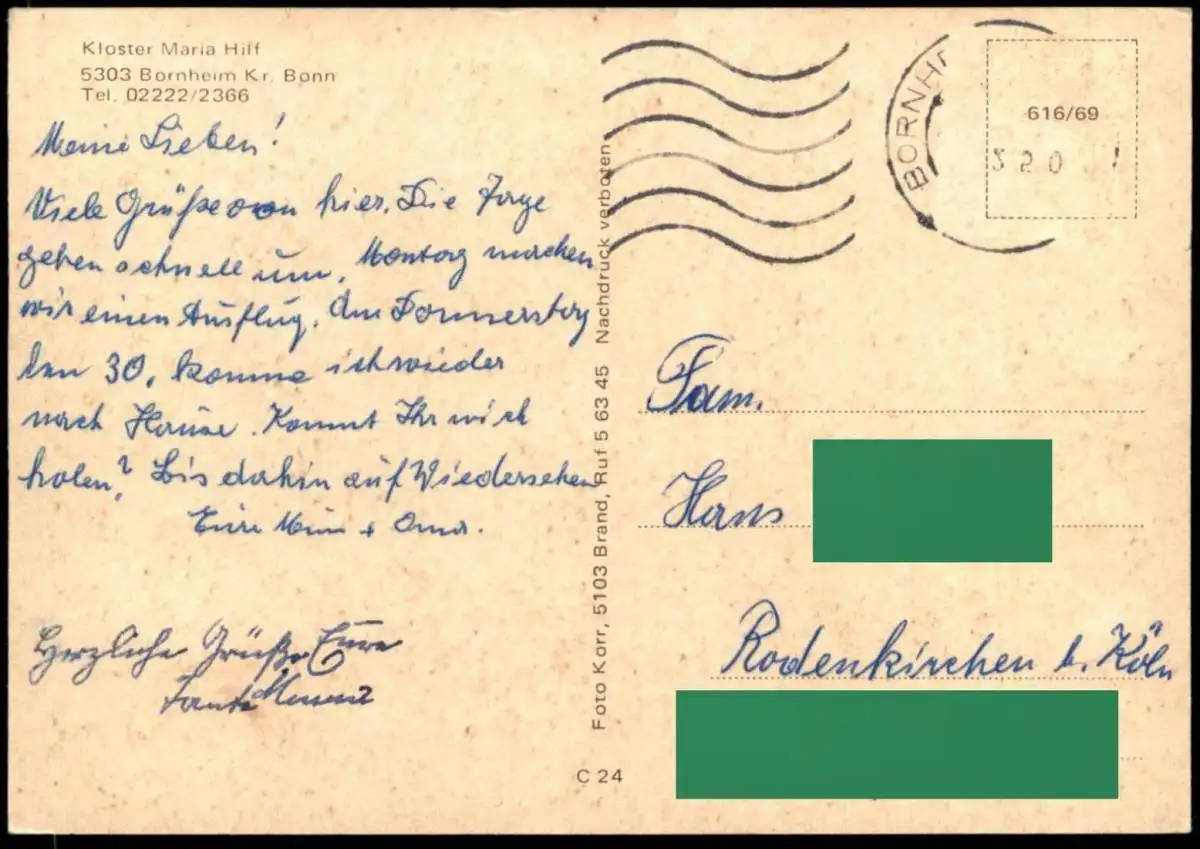 Kloster Maria Hilf
5303 Bornheim Kr. Bonn
Tel. 02222/2366
Meine Lieben!
Viele Grüße von hier. Die Tage
gehen schnell um. Montag machen
wir einen Ausflug. Am Donnerstag
den 30. komme ich wieder
nach Hause. Kommt Ihr mich
holen? Bis dahin auf Wiedersehen
Eure + Oma.
Herzliche Grüße Eure
Tante
Foto Korr, 5103 Brand, Ruf 5 63 45 Nachdruck verboten
C 24
BORNH
616/69
Fam.
Hans
Rodenkirchen b. Köln